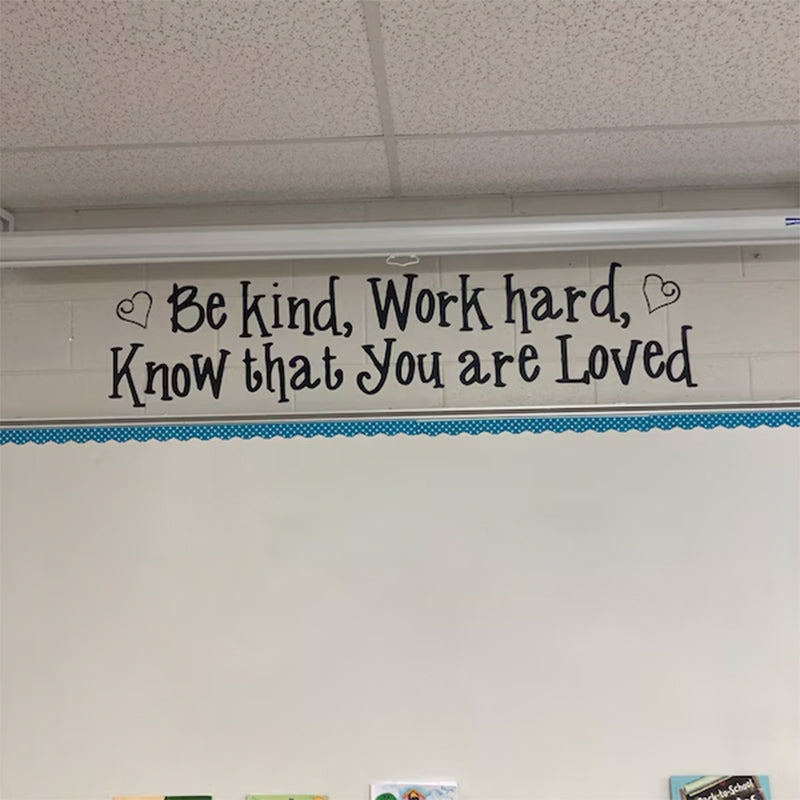 Be kind, Work hard,
Know that you are Loved
Back-to-School